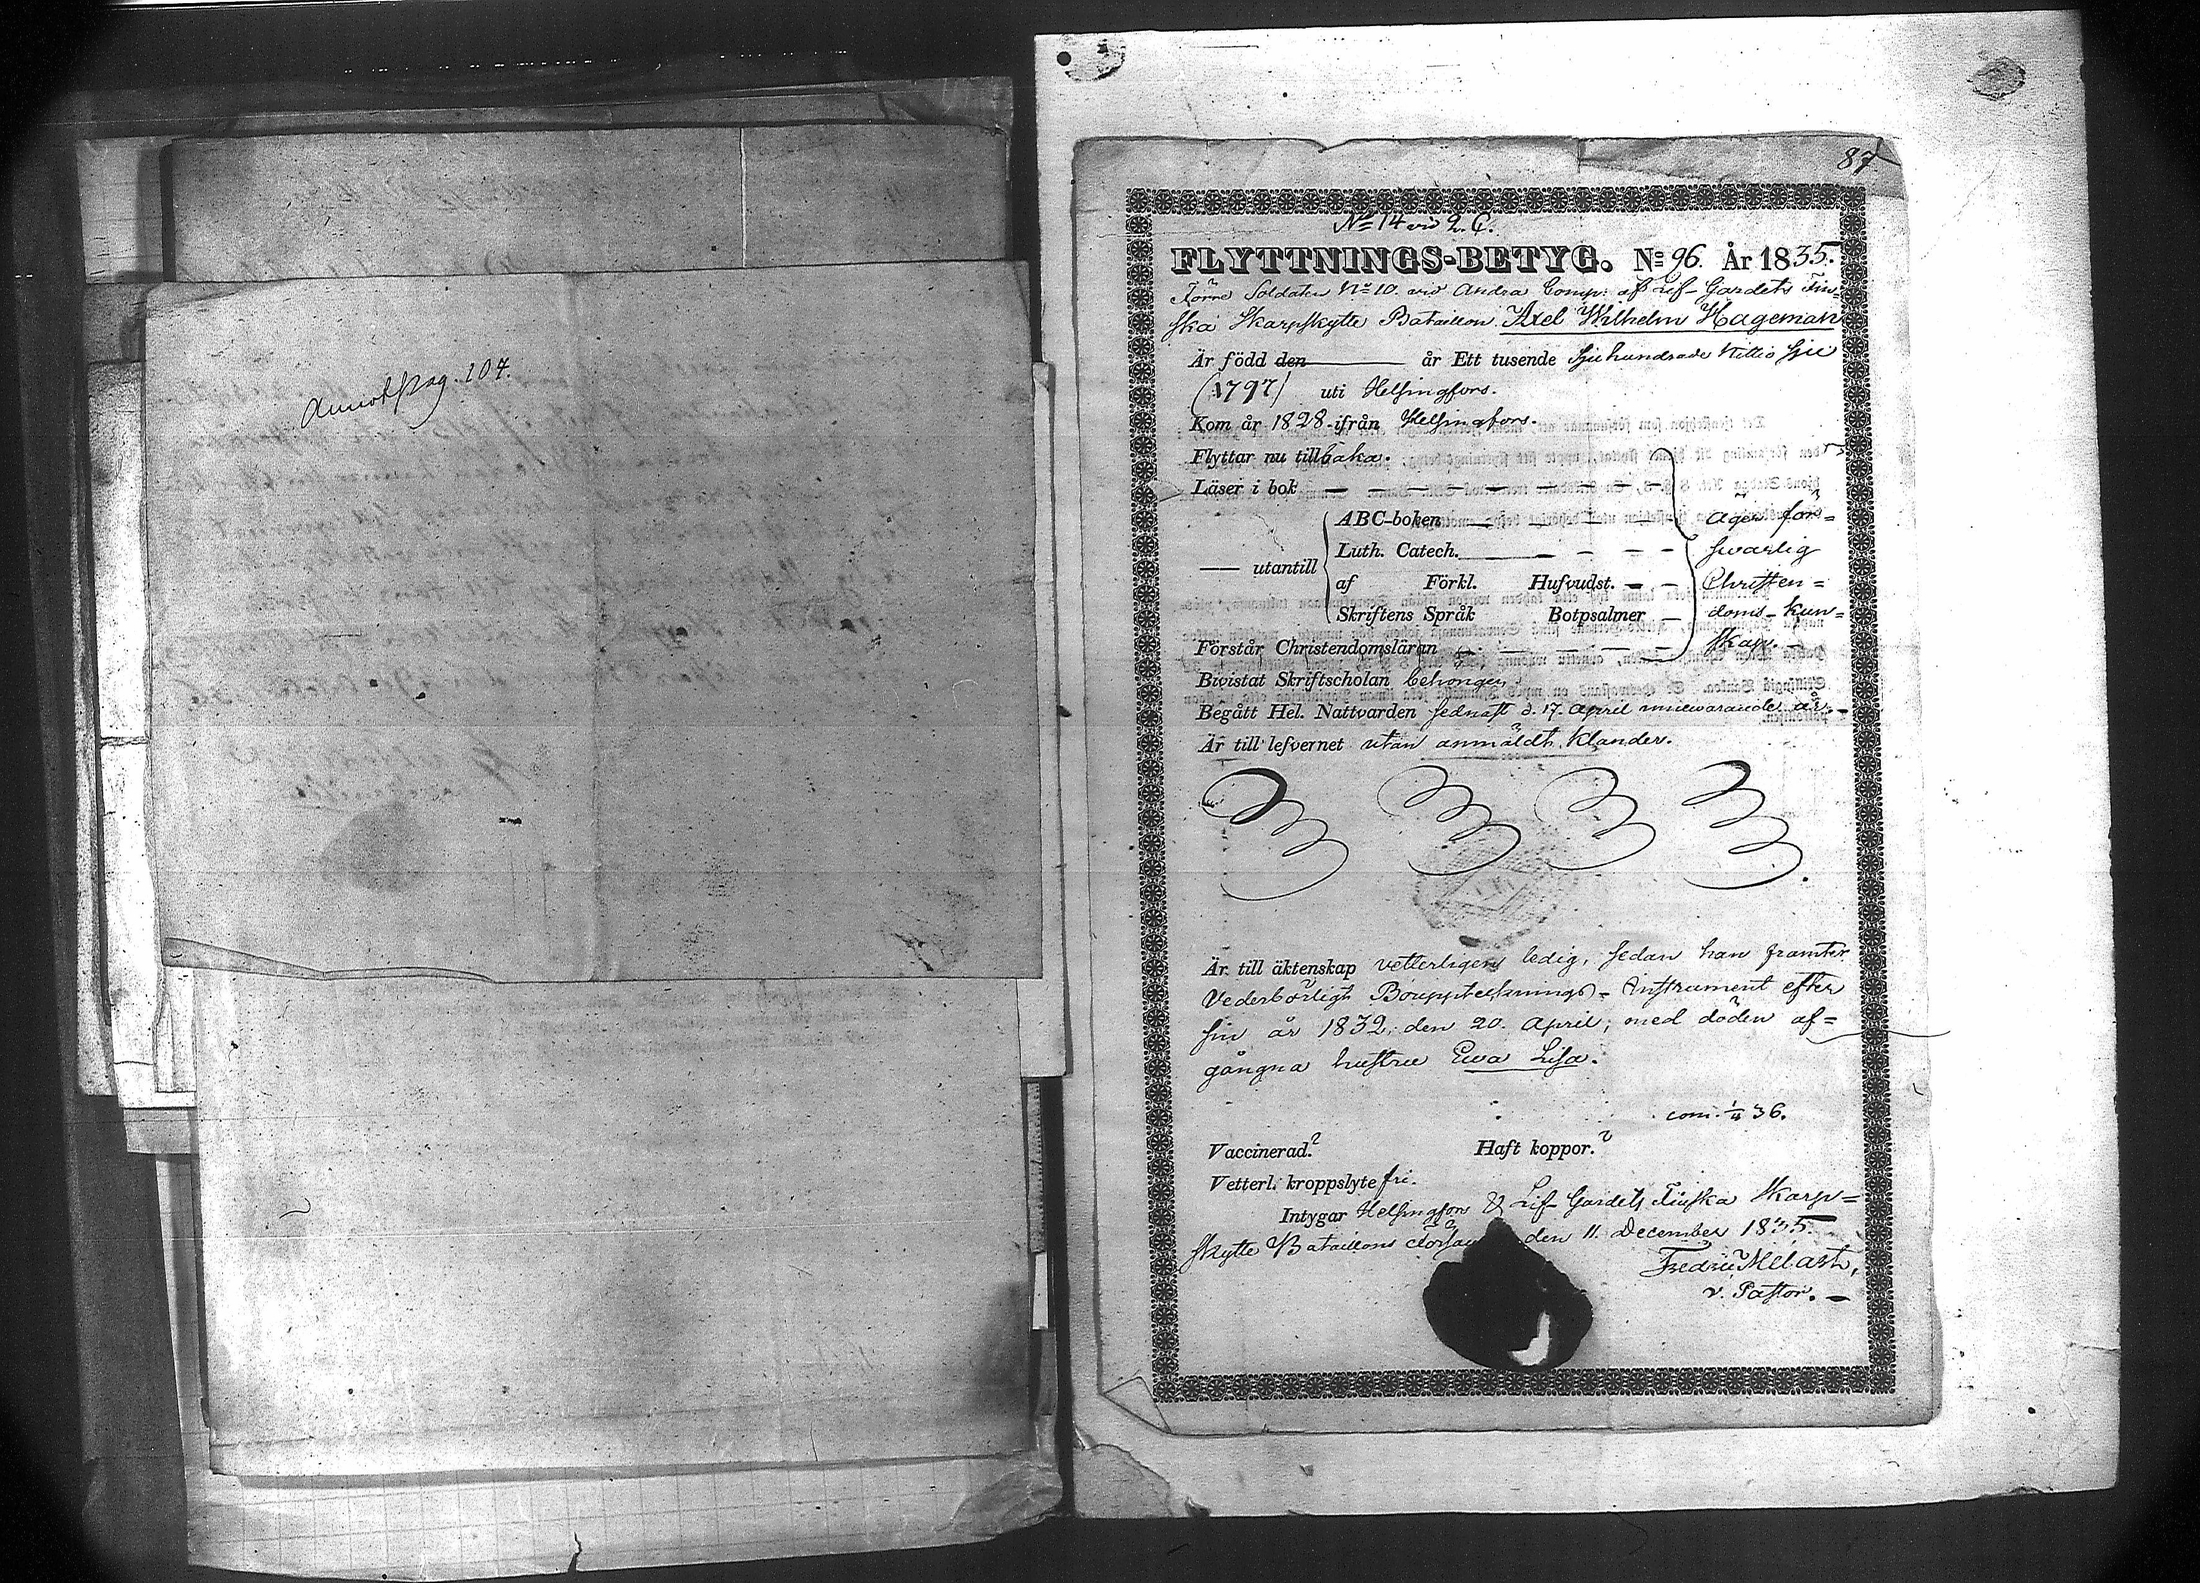 Annot. pag. 104.
87
No 14 vid 2. C.
FLYTTNINGS-BETYG. No 96. År 1835.
Förre Soldaten No 10. vid Andra Comp: af Lif-Gardets Fin-
ska Skarpskytte Bataillon Axel Wilhelm Hageman
Är född den år Ett tusende Sjuhundrade Nittio Sju
(1797) uti Helsingfors.
Kom år 1828 ifrån Helsingfors.
Flyttar nu tillbaka.
Läser i bok — — — — — — — —
ABC-boken — — — — — Äger för=
Luth. Catech. — — — — svarlig
— utantill
af Förkl. Hufvudst. — — Christen=
Skriftens Språk Botpsalmer — doms-kun=
Förstår Christendomsläran — — — — — skap. —
Bivistat Skriftscholan behörigen.
Begått Hel. Nattvarden sednast d. 17. April innewarande år. —
Är till lefvernet utan anmäldt klander.
Är till äktenskap vetterligen ledig, sedan han framter
Vederbörligt Bouppteknings-Instrument efter
sin år 1832, den 20. April, med döden af=
gångna hustru Ewa Lisa.
com. 1/4 36.
Vaccinerad? Haft koppor?
Vetterl. kroppslyte fri.
Intygar Helsingfors & Lif-Gardets Finska Skarp=
skytte Bataillons den 11. December 1835.
Fredric Melart,
v. Pastor. —